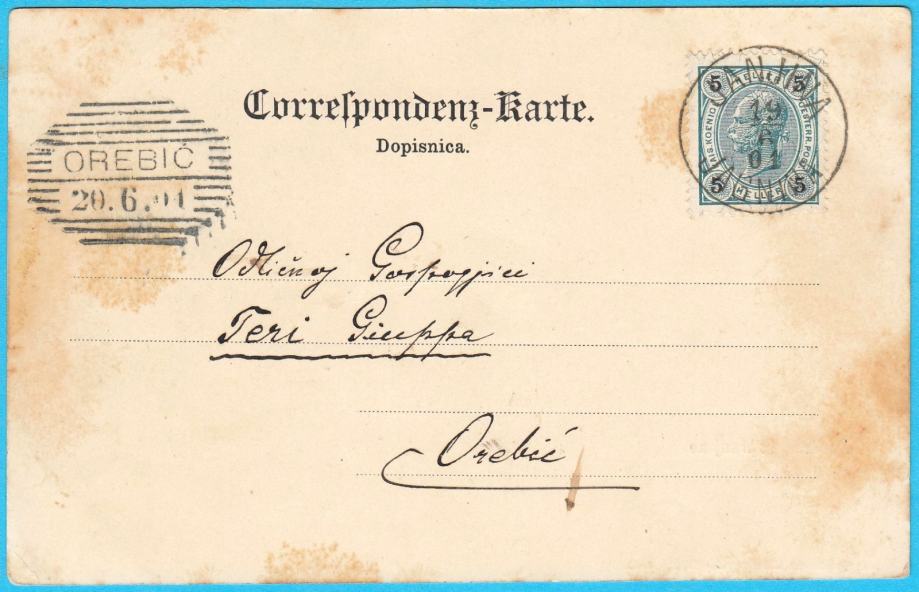 Correspondenz-Karte.
Dopisnica.
OREBIĆ
20.6.01
5 HELLER 5
KAIS. KOENIGL. OESTERR. POST
5 HELLER 5
JANJINA
19
6
01
JANJINA
Odličnoj Gospogjici
Teri Giuppa
Orebić